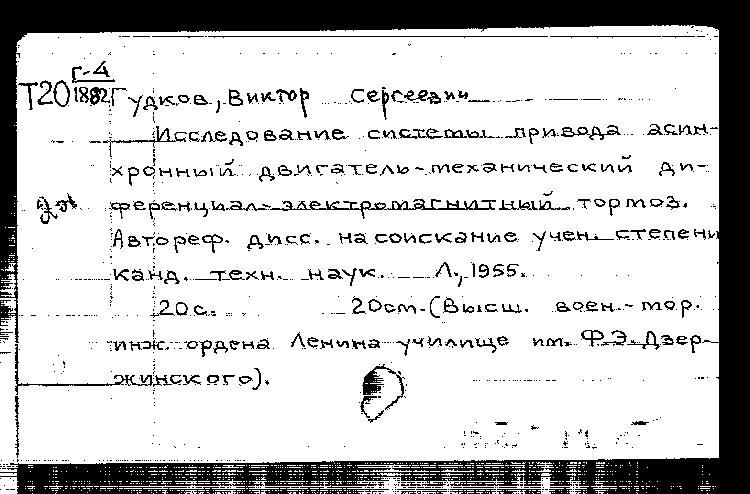 Г-4
Т20 1882 Гудков, Виктор Сергеевич
Исследование системы привода асин-
хронный двигатель-механический ди-
2эк
ференциал-электромагнитный тормоз.
Автореф. дисс. на соискание учен. степени
канд. техн. наук. Л., 1955.
20с. 20см. (Высш. воен.-мор.
инж. ордена Ленина училище им. Ф.Э. Дзер-
жинского).